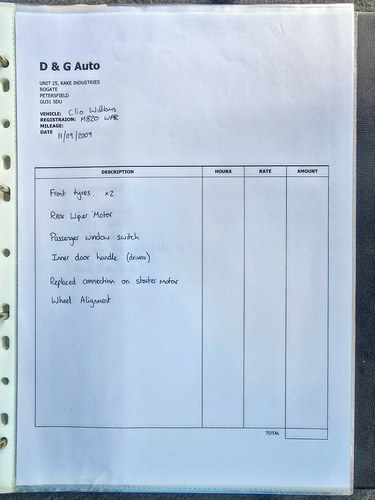 D & G Auto
UNIT 25, RAKE INDUSTRIES
ROGATE
PETERSFIELD
GU31 5DU
VEHICLE: Clio Williams
REGISTRAION: M820 WAR
MILEAGE:
DATE 11/09/2009
DESCRIPTION HOURS RATE AMOUNT
Front tyres x2
Rear Wiper Motor
Passenger window switch
Inner door handle (drivers)
Replaced connection on starter motor
Wheel Alignment
TOTAL